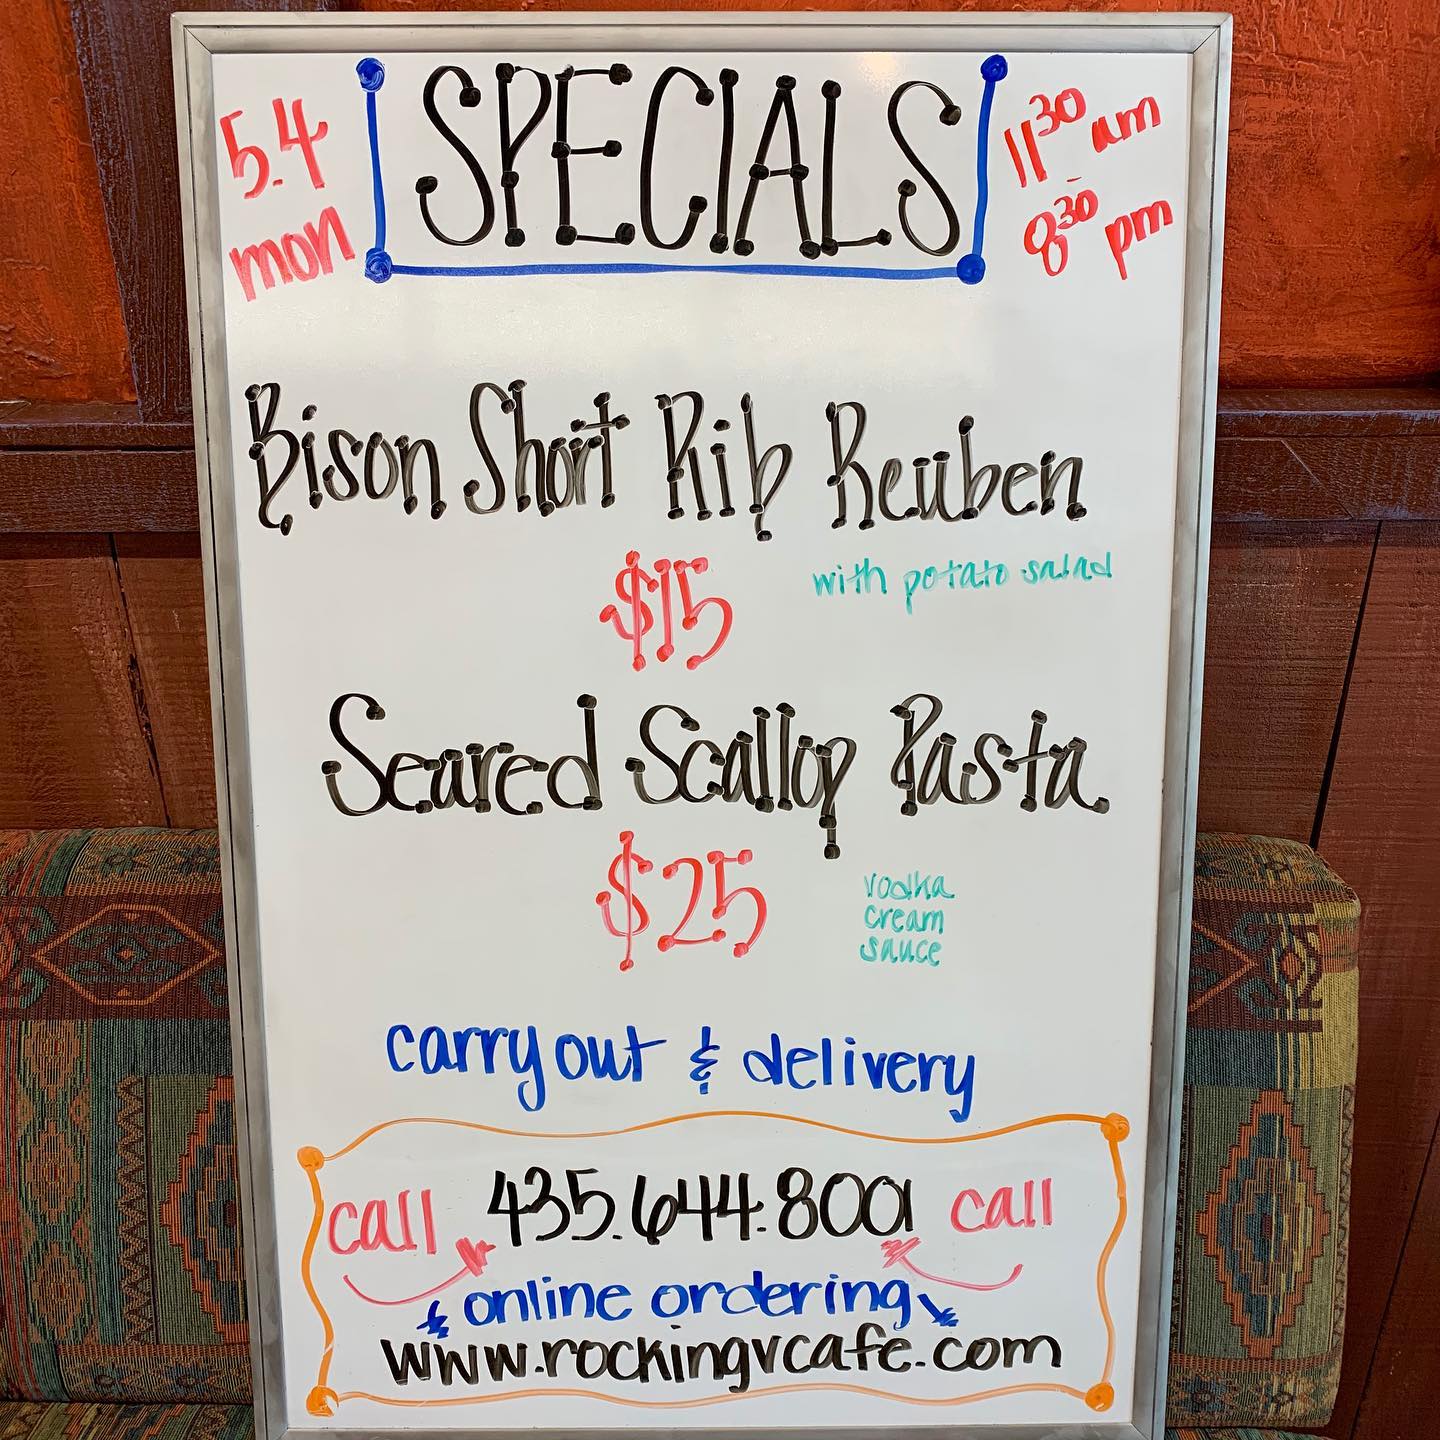 5.4
mon
SPECIALS
11³⁰ am
-
8³⁰ pm
Bison Short Rib Reuben
$15
with potato salad
Seared Scallop Pasta
$25
vodka
cream
sauce
carry out & delivery
call 435.644.8001 call
online ordering
www.rockingvcafe.com